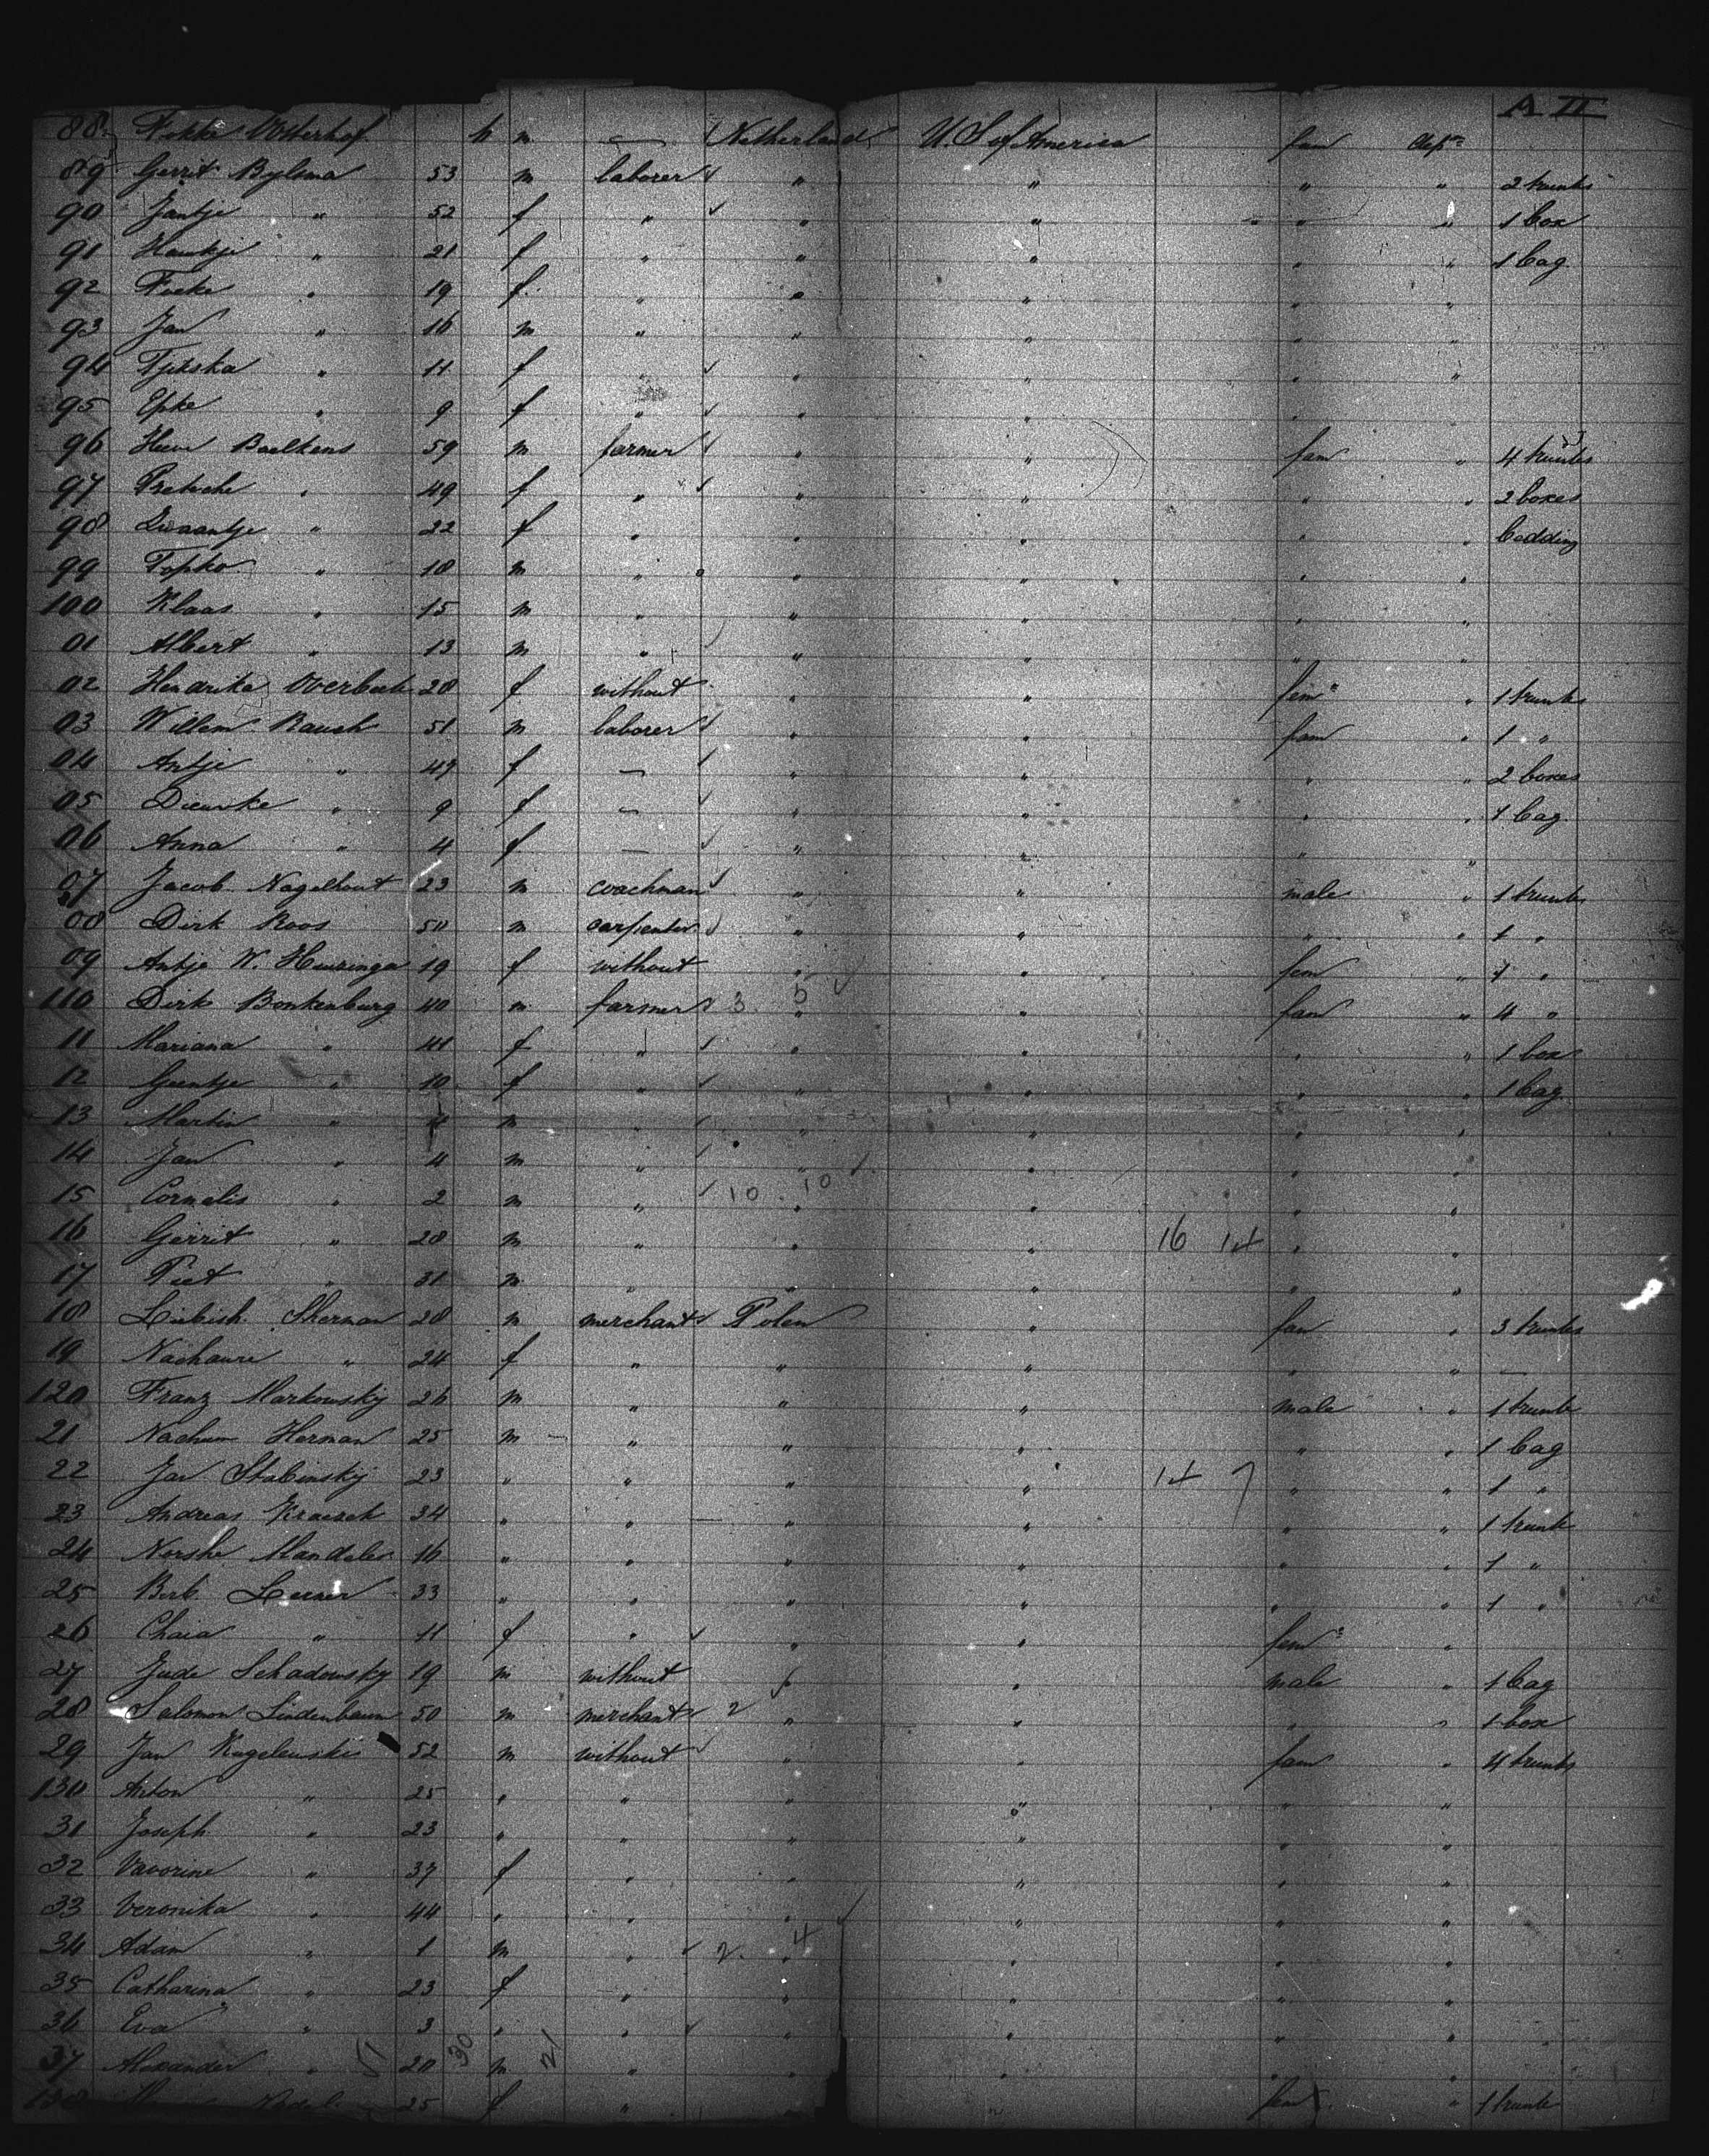 A II
88 Fokke Osterhof h m — Netherland U. S. of America fam
89 Gerrit Bylsma 53 m laborer " " " " 2 trunks
90 Jantje " 52 f " " " " " 1 box
91 " 21 f " " " " " 1 bag
92 Focke " 19 f " " " " "
93 Jan " 16 m " " " " "
94 " 11 f " " " " "
95 Epke " 9 f " " " "
96 59 m farmer " " fam " 4 trunks
97 " 49 f " " " " " 2 boxes
98 " 22 f " " " " " bedding
99 Topko " 18 m " " " " "
100 Klaas " 15 m " " " " "
01 Albert " 13 m " " " " "
02 Hendrika Overbeek 28 f without " " fem " 1 trunk
03 Willem Rauch 51 m laborer " " fam " 1 "
04 Antje " 47 f — " " " " 2 boxes
05 Dieuwke " 9 f — " " " " 1 bag
06 Anna " 4 f — " " " "
07 Jacob Nagelhout 23 m coachman " " male " 1 trunk
08 Dirk Roos 50 m carpenter " " " " 1 "
09 Antje W. Huizinga 19 f without " " fem " 1 "
110 Dirk Bonkenburg 40 m farmer 3 5 " " fam " 4 "
11 Mariana " 41 f " " " " " 1 box
12 Geertje " 10 f " " " " " 1 bag
13 Martin " m " " " " "
14 Jan " 4 m " " " " "
15 Cornelis " 2 m " 10 10 " " " "
16 Gerrit " 28 m " " " 16 14 " "
17 Piet " 31 m " " " " "
18 Leibish Sherman 28 m merchant Polen " fam " 3 trunks
19 " 24 f " " " " " —
120 Franz Markowsky 26 m " " " male " 1 trunk
21 Nachum Herman 25 m " " " " " 1 bag
22 Jan Stabinsky 23 " " " " 14 7 " " 1 "
23 Andreas 34 " " " " " " 1 trunk
24 Mandeles 16 " " " " " " 1 "
25 Berb. Lerner 33 " " " " " " 1 "
26 Chaia " 11 f " " " fem "
27 Jude Schadowsky 19 m without " " male " 1 bag
28 Salomon Lindenbaum 50 m merchant 2 " " " " 1 box
29 Jan 52 m without " " fam " 4 trunks
130 Anton " 25 " " " " " "
31 Joseph " 23 " " " " " "
32 " 37 f " " " " "
33 Veronika " 44 " " " " " "
34 Adam " 1 m " 2 4 " " " "
35 Catharina " 23 f " " " " "
36 Eva " 3 " " " " " "
37 Alexander " 51 20 30 m 21 " " " " "
138 25 f " fem " 1 trunk